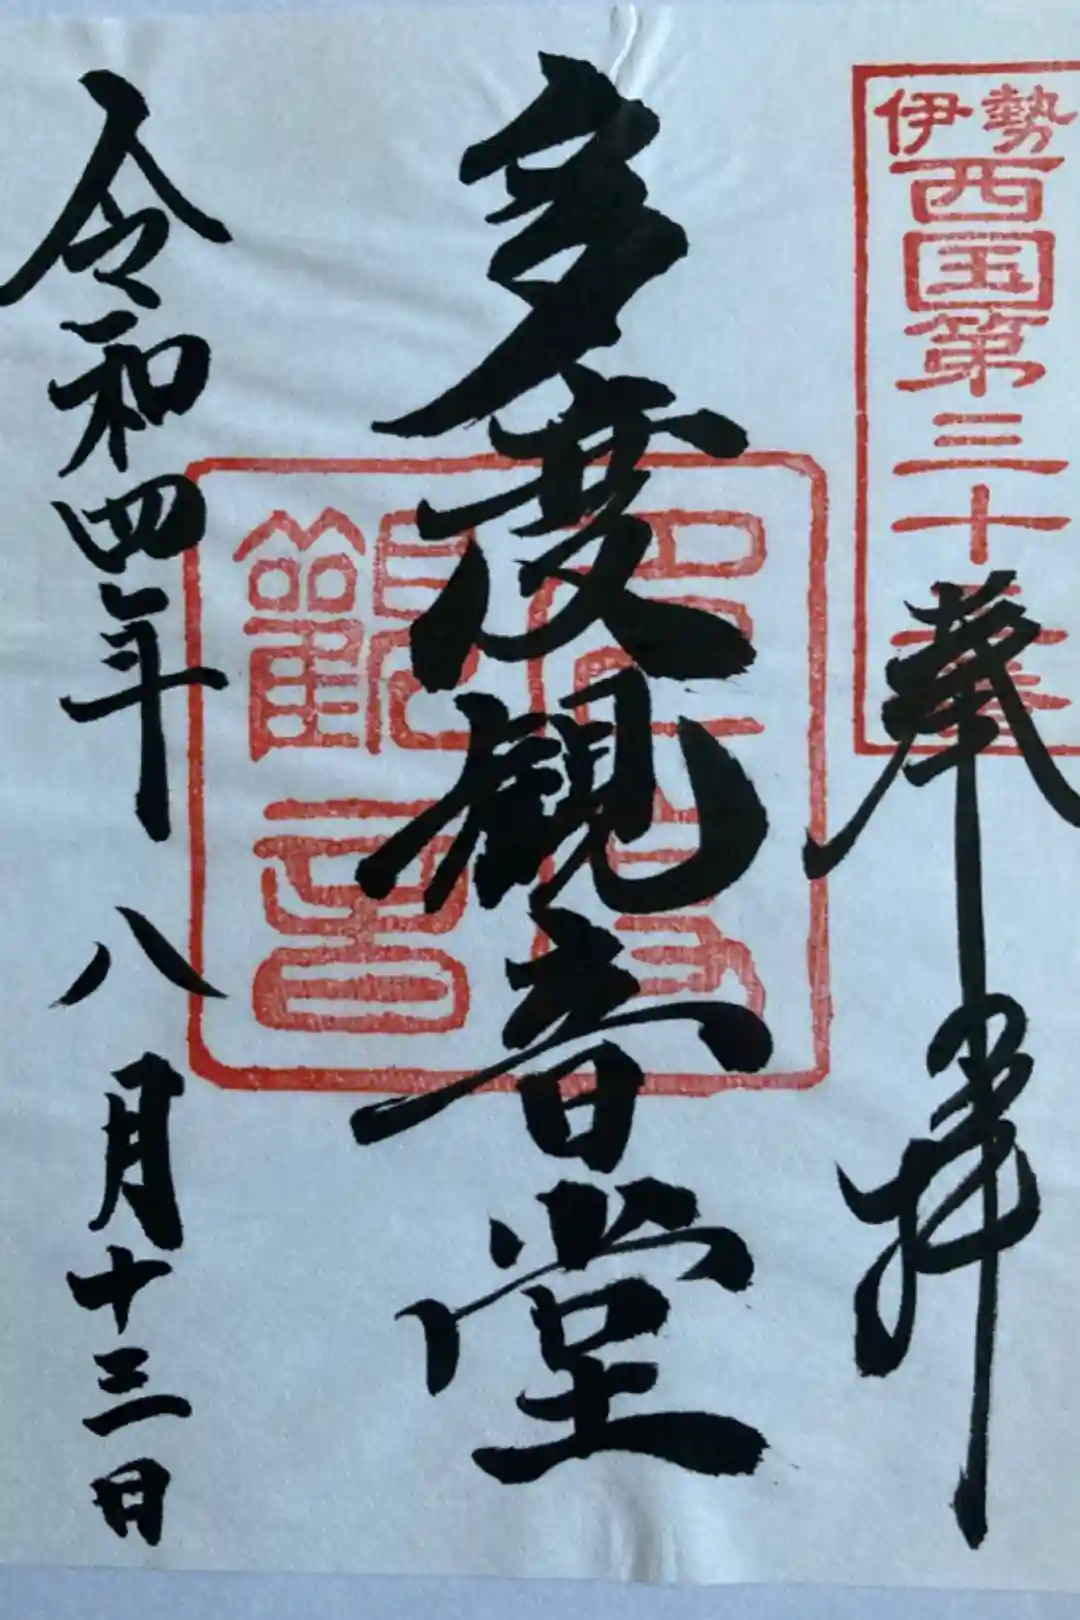 伊勢
西国第三十
奉拝
多度観音堂
令和四年八月十三日